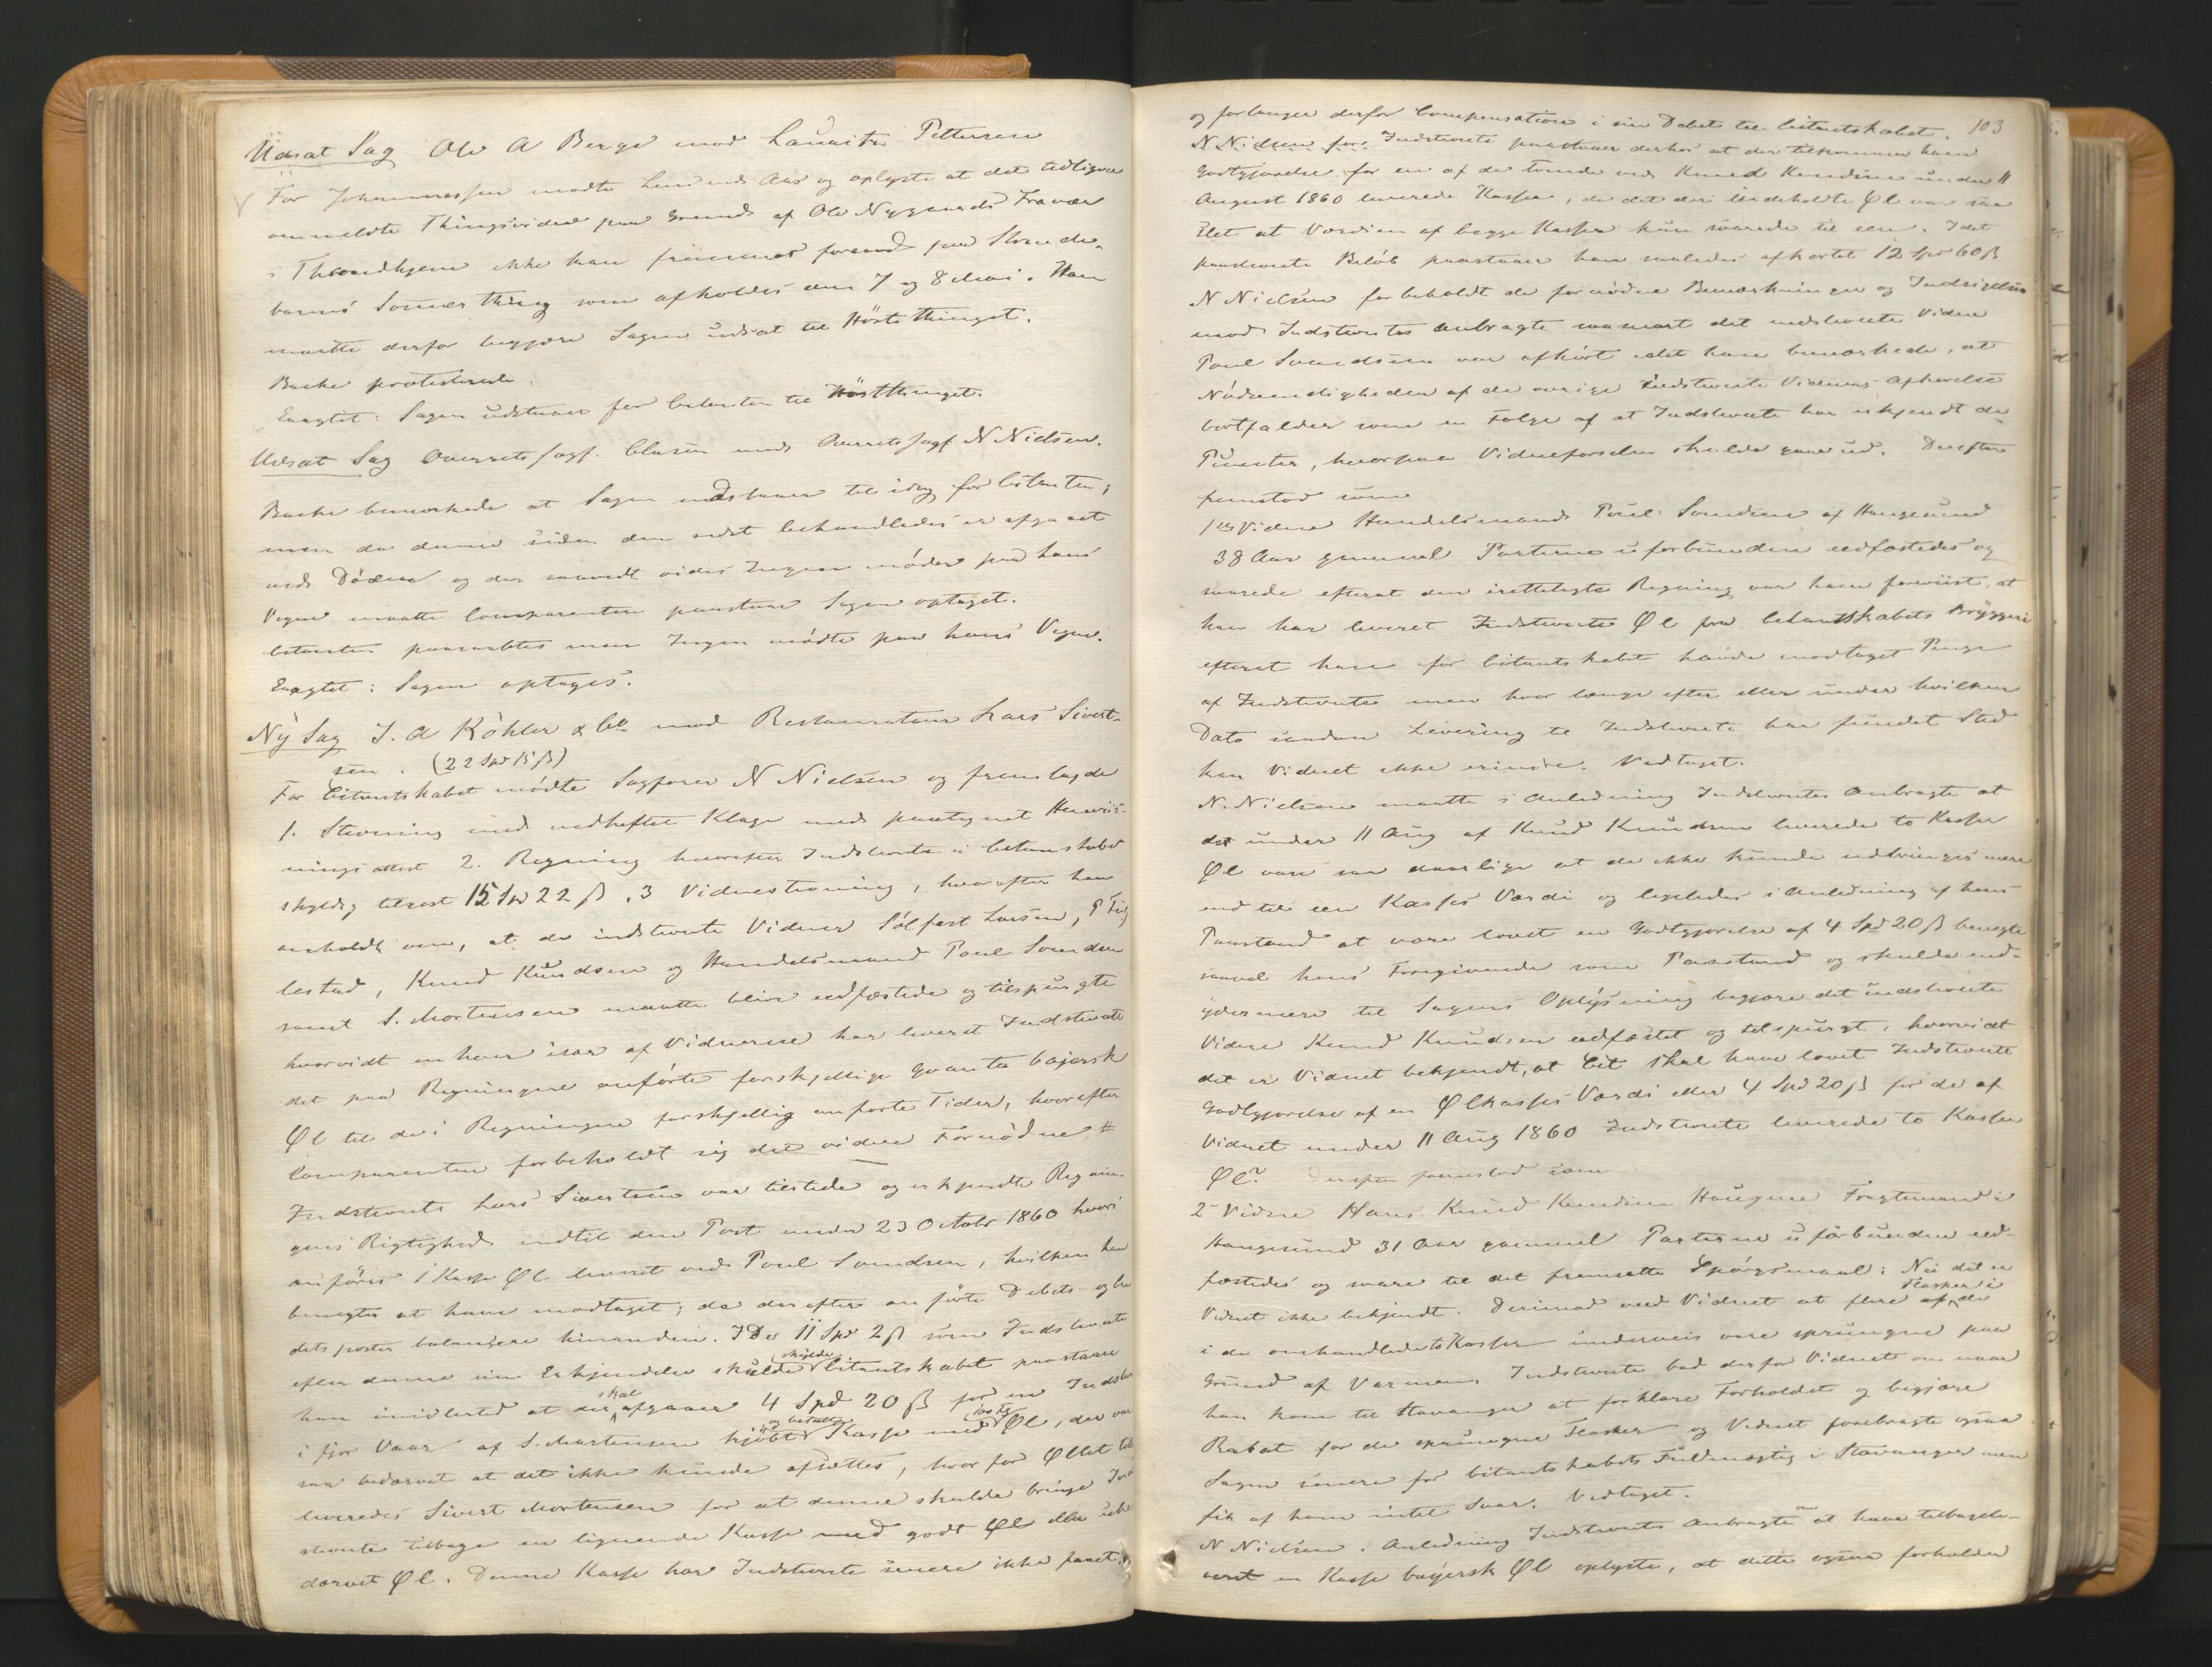 Udsat Sag. Ole A Berge mod Lauritz Pettersen
For Johannessen mødte Lensmd. Aas og oplyste at det tidligere
anmeldte Thingsvidne paa Grund af Ole Nygaards Fravær
i Throndhjem ikke kan fremmes forend paa Strinde-
barms Sommerthing som afholdes den 7 og 8 Mai. Han
maatte derfor begjære Sagen udsat til Høstthinget.
Backe protesterede.
Eragtet: Sagen udstaaer for Citanten til Høstthinget.
Udsat Sag Overretssagf. Clasen mod Overretssagf N Nielsen.
Backe bemærkede at Sagen udstaaer til idag for Citanten;
men da denne siden den sidst behandledes er afgaaet
ved Døden og der saavidt vides Ingen møder paa hans
Vegne maatte Comparenten paastaae Sagen optaget.
Citanten paaraabtes men Ingen mødte paa hans Vegne.
Eragtet: Sagen optages.
Ny Sag J. A Köhler & Co mod Restauratør Lars Sivert-
sen. (22 Spd 15 ß)
For Citantskabet mødte Sagfører N Nielsen og fremlagde
1. Stevning med vedheftet Klage med paategnet Henviis-
nings attest 2. Regning hvorefter Indstevnte er Citantskabet
skyldig tilrest 15 Spd 22 ß. 3 Vidnestevning, hvorefter han
anholdt om, at de indstevnte Vidner Sølfest Larsen, P
lestad, Knud Knudsen og Handelsmand Poul Svendsen
samt S. Mortensen maatte blive eedfæstede og tilspurgte
hvorvidt enhver især af Vidnerne har leveret Indstevnte
det paa Regningen anførte forskjellige Qvanta bajersk
Øl til de i Regningen forskjellig anførte Tider, hvorefter
Comparenten forbeholdt sig det videre Fornødne #
Indstevnte Lars Sivertsen var tilstede og erkjendte Regnin-
gens Rigtighed indtil den Post under 23 October 1860 hvori
anføres 1 Kasse Øl leveret ved Poul Svendsen, hvilken han
benegter at have modtaget; de derefter anførte Debets- og Cre
dets poster balancere hinanden. I De 11 Spd 2 ß som Indstevnte
efter denne sin Erkjendelse skulde skylde Citantskabet paastaaer
han imidlertid at der skal afgaaer 4 Spd 20 ß for en Indstev
i fjor Vaar af S. Mortensen kjøbt og betalt Kasse med Øl, der var
saa bedærvet at det ikke kunde afsættes, hvorfor Øllet til
leveredes Sivert Mortensen for at denne skulde bringe Ind
stevnte tilbage en lignende Kasse med godt Øl eller ube
dærvet Øl. Denne Kasse har Indstevnte senere ikke faaet.
103
og forlanger derfor Compensation i sin Debet til Citantskabet.
N Nielsen for Indstevnte paastaaer derhos at der tilkommer ham
Godtgjørelse for en af de tvende ved Knud Knudsen under 11
August 1860 leverede Kasser, da det deri indeholdte Øl var saa
slet at Værdien af begge Kasser kun svarede til een. I det
paastevnte Beløb paastaaer han saaledes afkortet 12 Spd 60 ß
N Nielsen forbeholdt de fornødne Bemærkninger og Indsigelser
mod Indstevntes Anbragte saasnart det indstevnte Vidne
Poul Svendsen var afhørt idet han bemærkede, at
Nødvendigheden af de øvrige indstevnte Vidners Afhørelse
bortfalder som en Følge af at Indstevnte har erkjendt de
Puncter, hvorpaa Vidneførselen skulde gaae ud. Derefter
fremstod som
1ste Vidne Handelsmand Poul Svendsen af Haugesund
38 Aar gammel Parterne uforbunden eedfæstedes og
svarede efterat den irettelagte Regning var ham foreviist, at
han har leveret Indstevnte Øl fra Citantskabets Bryggeri
efterat han for Citantskabet havde modtaget Penge
af Indstevnte men hvor længe efter eller under hvilken
Dato saadan Levering til Indstevnte har fundet Sted
kan Vidnet ikke erindre. Vedtaget.
N. Nielsen maatte i Anledning Indstevntes Anbragte at
det under 11 Aug af Knud Knudsen leverede to Kasser
Øl vare saa daarlige at de ikke kunde udbringes mere
end til een Kasses Værdi og ligeledes i Anledning af hans
Paastand at være lovet en Godtgjørelse af 4 Spd 20 ß benegte
saavel hans Foregivende som Paastand og skulde end-
ydermere til Sagens Oplysning begjære det indstevnte
Vidne Knud Knudsen eedfæstet og tilspurgt, hvorvidt
det er Vidnet bekjendt, at Cit skal have lovet Indstevnte
Godtgjørelse af en Ølkasses Værdi eller 4 Spd 20 ß for de af
Vidnet under 11 Aug 1860 Indstevnte leverede to Kasser
Øl? Derefter fremstod som
2 Vidne Hans Knud Knudsen Haugene Fragtemand i
Haugesund 31 Aar gammel Parterne uforbunden eed-
fæstedes og svare til det fremsatte Spørgsmaal: Nei det er
Vidnet ikke bekjendt. Derimod veed Vidnet at flere af Flasker i de
i de omhandlede to Kasser underveis vare sprungne paa
Grund af Varmen. Indstevnte bad derfor Vidnet om naar
han kom til Stavanger at forklare Forholdet og begjære
Rabat for de sprungne Flasker og Vidnet forebragte ogsaa
Sagen senere for Citantskabets Fuldmægtig i Stavanger men
fik af ham intet Svar. Vedtaget.
N Nielsen i Anledning Indstevntes Anbragte om at have tilbagele-
veret en Kasse bayersk Øl oplyste, at dette ogsaa forholder